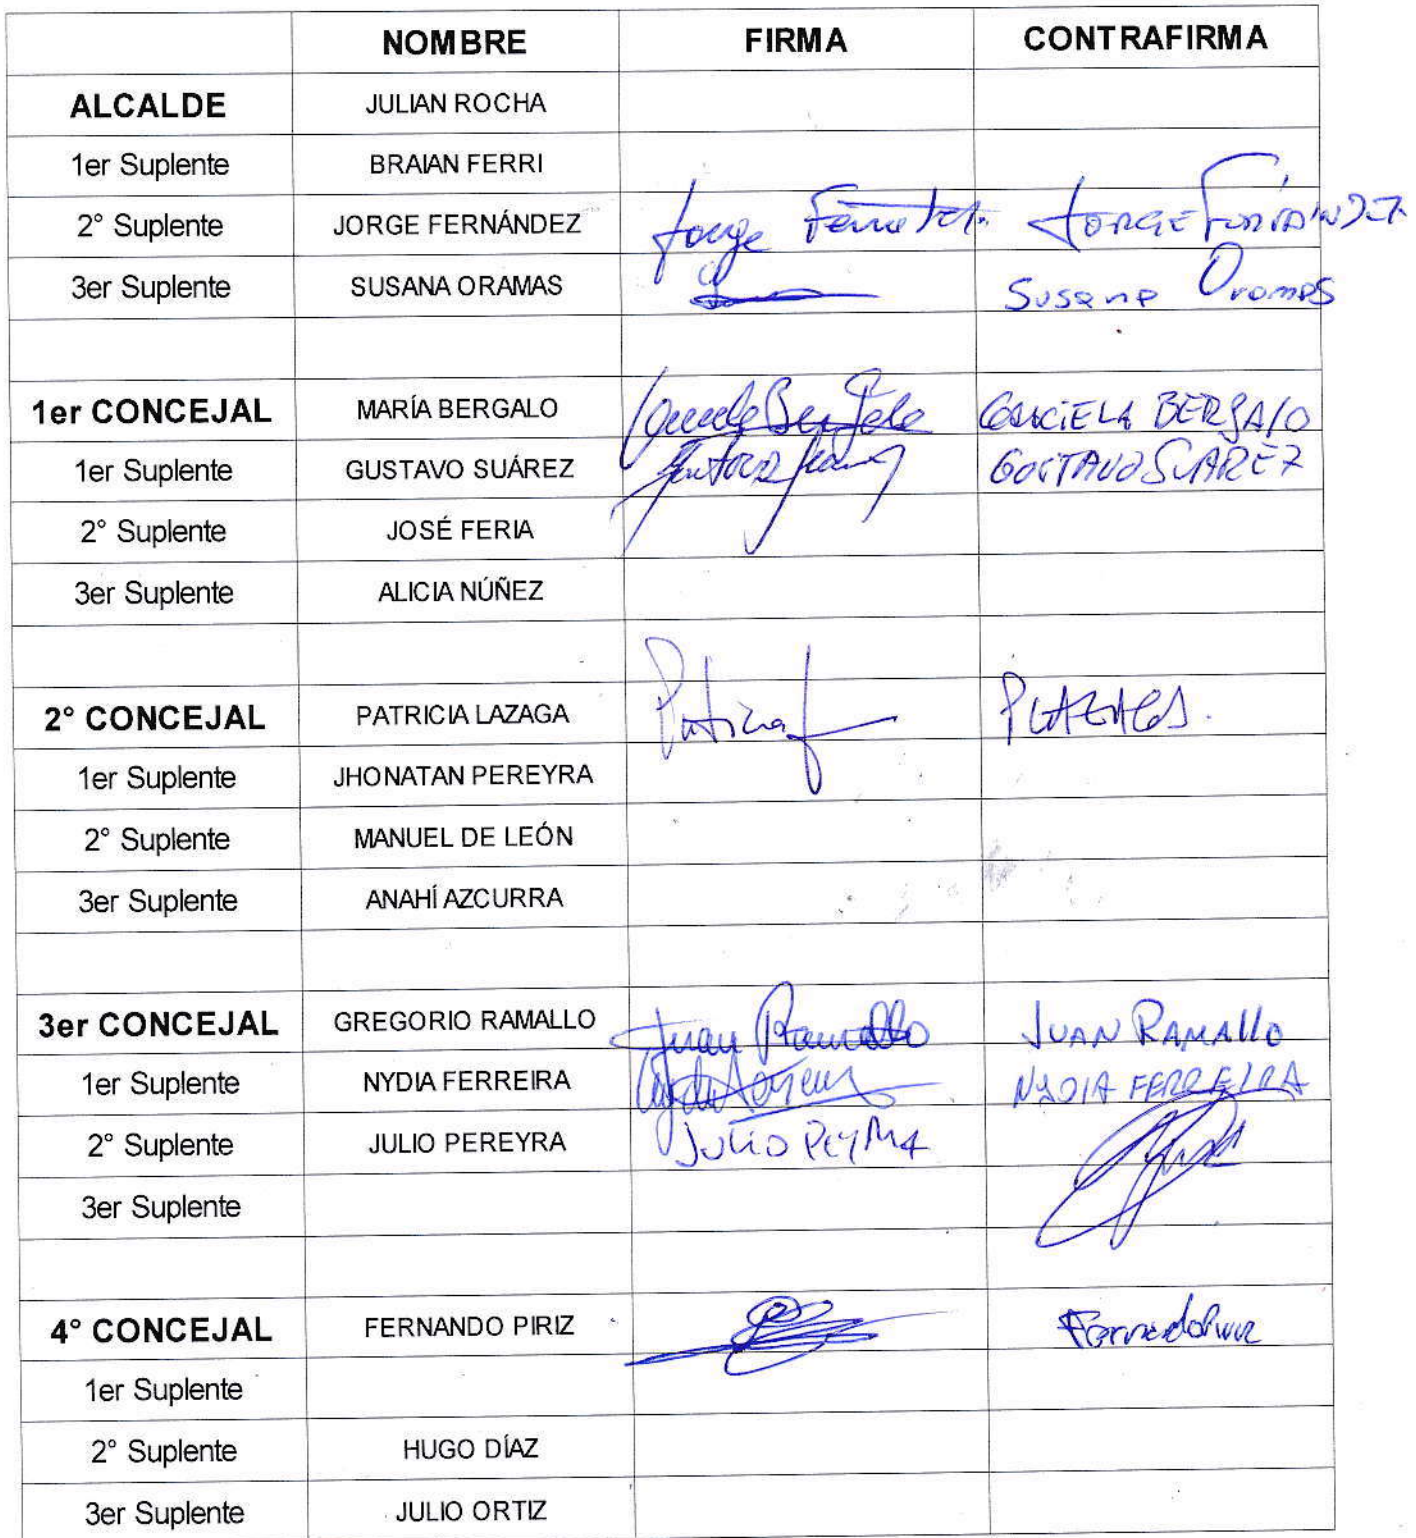 NOMBRE FIRMA CONTRAFIRMA
ALCALDE JULIAN ROCHA
1er Suplente BRAIAN FERRI
2° Suplente JORGE FERNÁNDEZ Jorge JORGE FERNÁNDEZ
3er Suplente SUSANA ORAMAS Susana Oramas
1er CONCEJAL MARÍA BERGALO GRACIELA BERGALO
1er Suplente GUSTAVO SUÁREZ GUSTAVO SUAREZ
2° Suplente JOSÉ FERIA
3er Suplente ALICIA NÚÑEZ
2° CONCEJAL PATRICIA LAZAGA Patricia
1er Suplente JHONATAN PEREYRA
2° Suplente MANUEL DE LEÓN
3er Suplente ANAHÍ AZCURRA
3er CONCEJAL GREGORIO RAMALLO Juan Ramallo JUAN RAMALLO
1er Suplente NYDIA FERREIRA NYDIA FERREIRA
2° Suplente JULIO PEREYRA JULIO
3er Suplente
4° CONCEJAL FERNANDO PIRIZ
1er Suplente
2° Suplente HUGO DÍAZ
3er Suplente JULIO ORTIZ